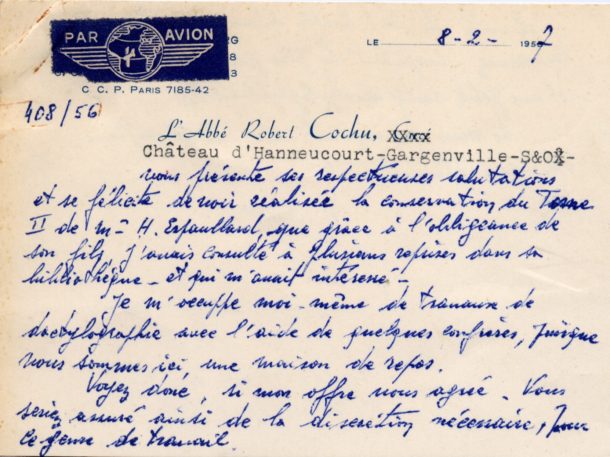 PAR AVION
RG
8
3
C. C. P. PARIS 7185-42
LE 8-2- 1957
408/56
L'Abbé Robert Cochu,
Château d'Hanneucourt-Gargenville-S&O-
vous présente ses respectueuses salutations
et se félicite de voir réalisée la conservation du Tome
II de H. Espaullard, que grâce à l'obligeance de
son fils, j'avais consulté à plusieurs reprises dans sa
bibliothèque - et qui m'avait intéressé -
Je m'occupe moi-même de travaux de
dactylographie avec l'aide de quelques confrères, puisque
nous sommes ici, une maison de repos.
Voyez donc, si mon offre vous agrée. Vous
seriez assuré ainsi de la discrétion nécessaire, pour
ce genre de travail.